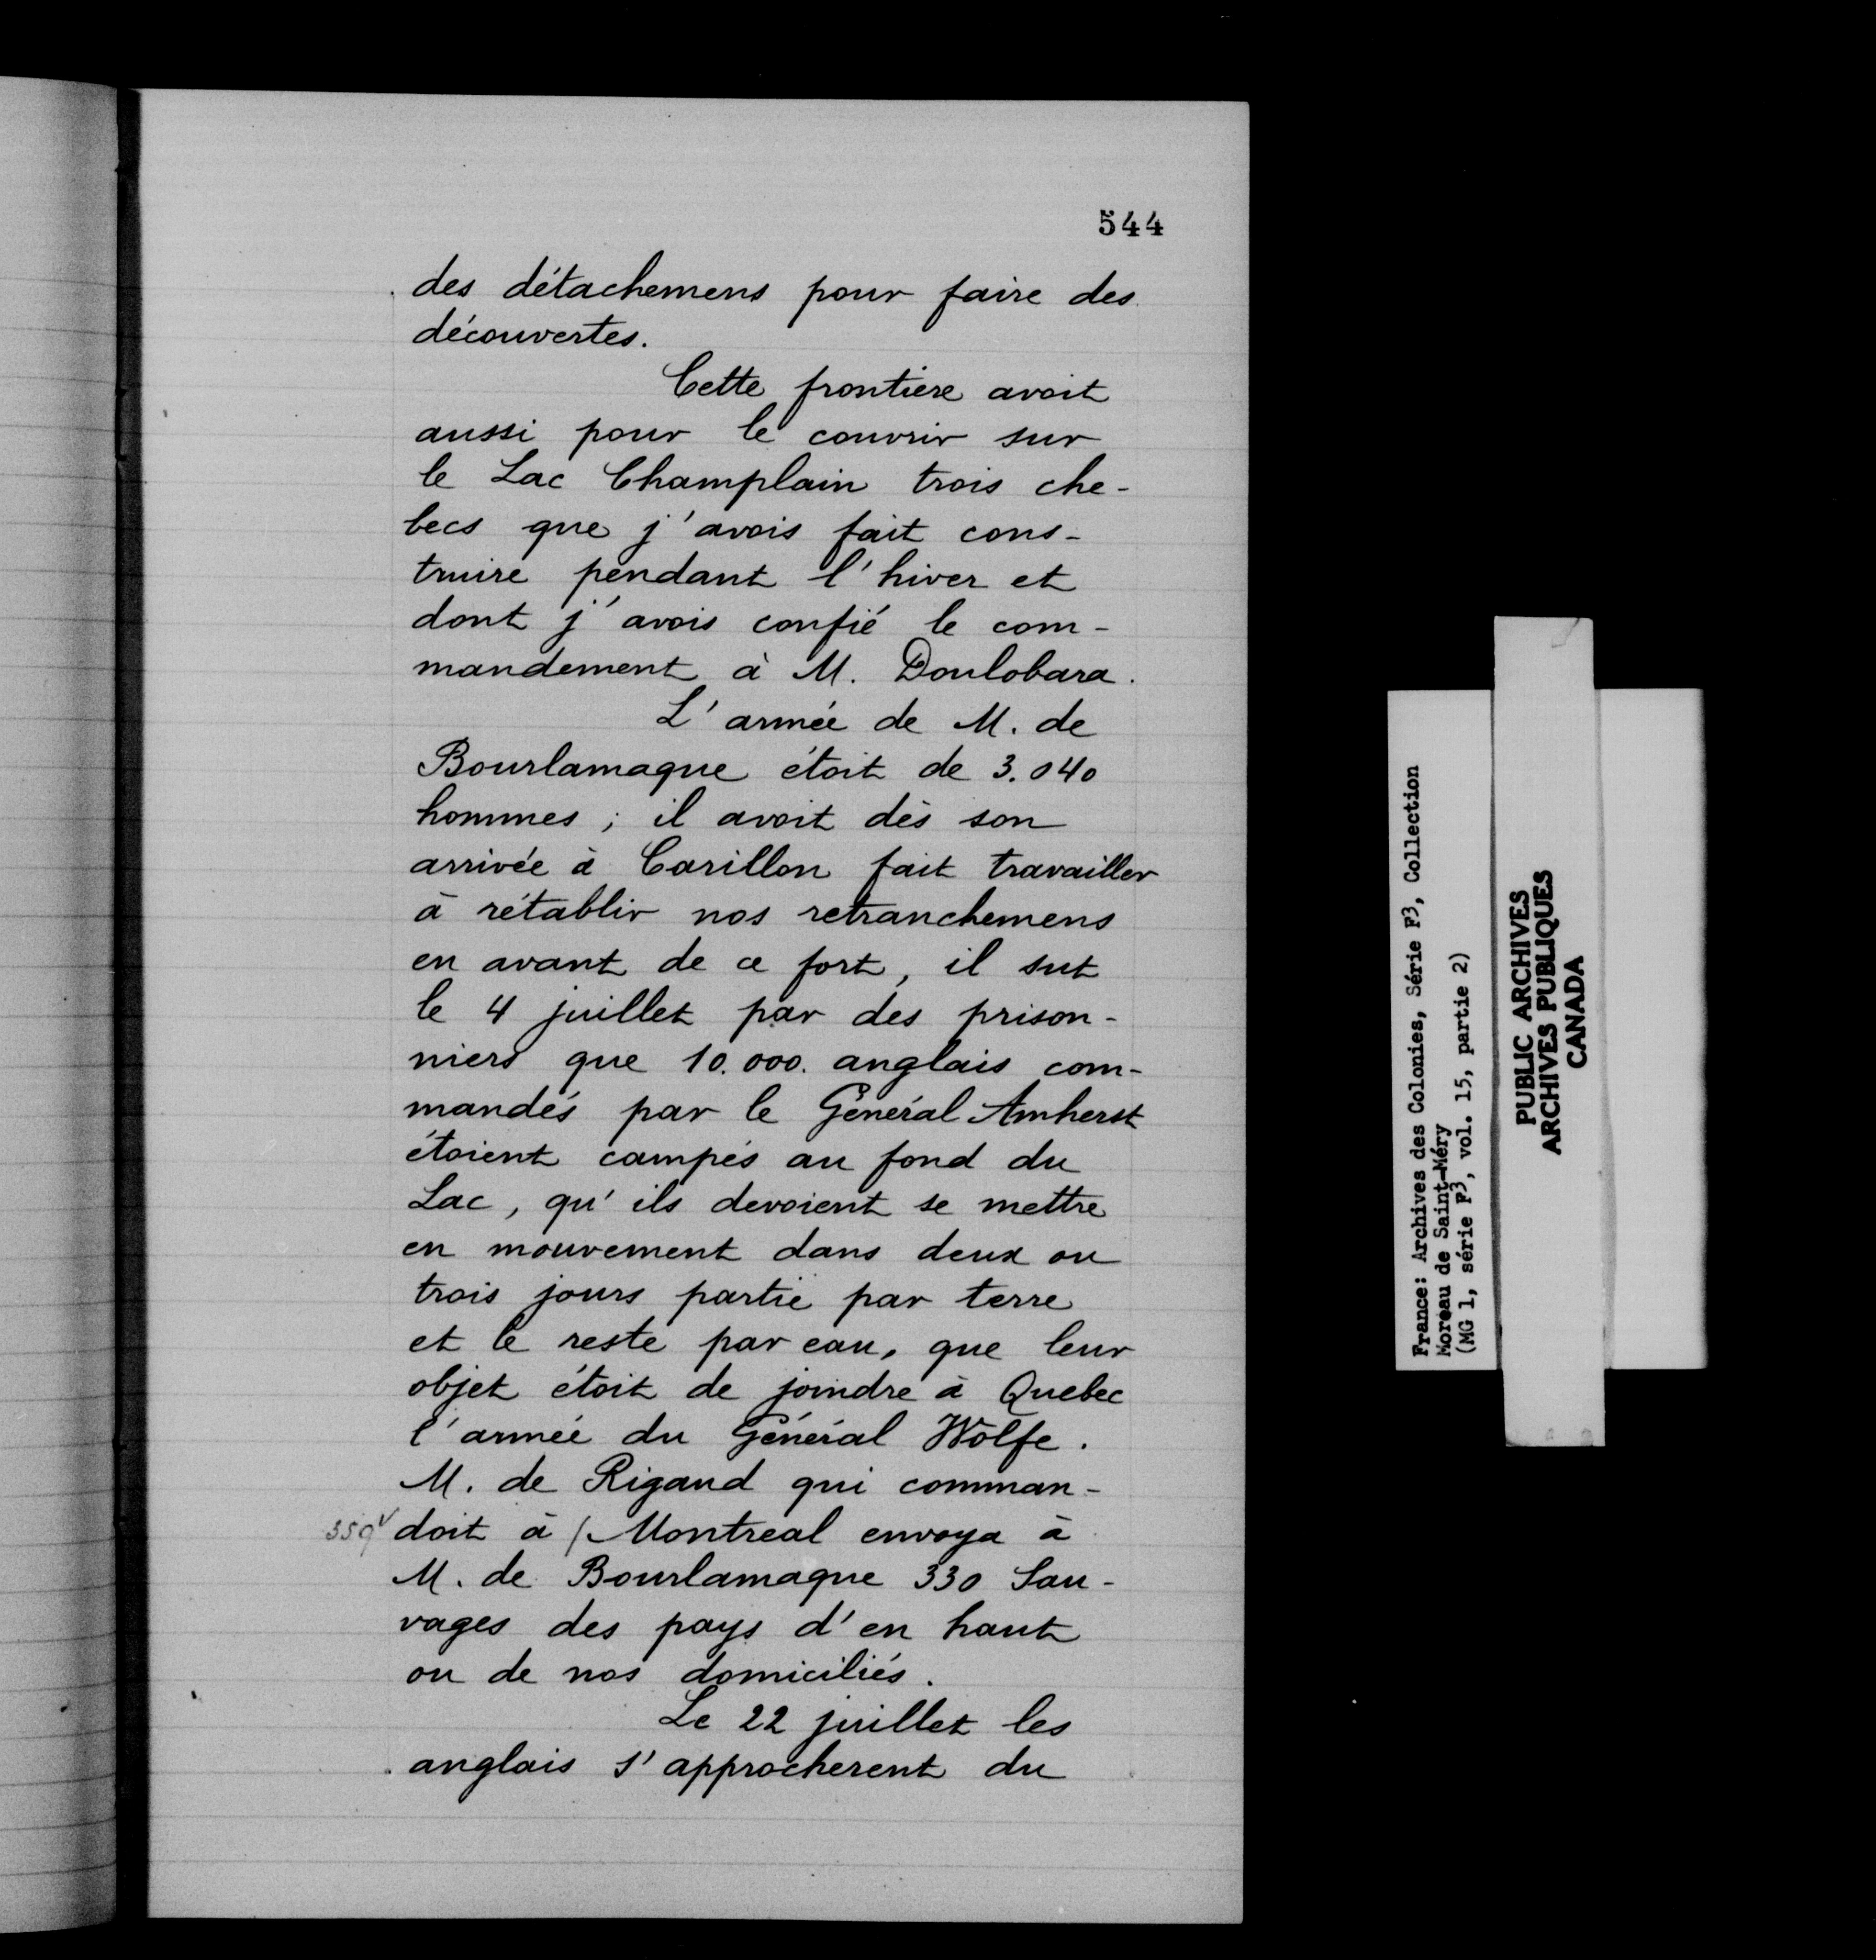 544
des détachemens pour faire des
découvertes.
Cette frontiere avoit
aussi pour le couvrir sur
le Lac Champlain trois che-
becs que j'avois fait cons-
truire pendant l'hiver et
dont j'avois confié le com-
mandement à M. Doulobara.
L'armée de M. de
Bourlamaque étoit de 3.040
hommes ; il avoit dès son
arrivée à Carillon fait travailler
à rétablir nos retranchemens
en avant de ce fort, il sut
le 4 juillet par des prison-
niers que 10.000. anglais com-
mandés par le Général Amherst
étoient campés au fond du
Lac, qu'ils devoient se mettre
en mouvement dans deux ou
trois jours partie par terre
et le reste par eau, que leur
objet étoit de joindre à Quebec
l'armée du Général Wolfe.
M. de Rigaud qui comman-
359v doit à / Montreal envoya à
M. de Bourlamaque 330 Sau-
vages des pays d'en haut
ou de nos domiciliés.
Le 22 juillet les
anglais s'approcherent du
France: Archives des Colonies, Série F3, Collection
Moreau de Saint-Méry
(MG 1, série F3, vol. 15, partie 2)
PUBLIC ARCHIVES
ARCHIVES PUBLIQUES
CANADA